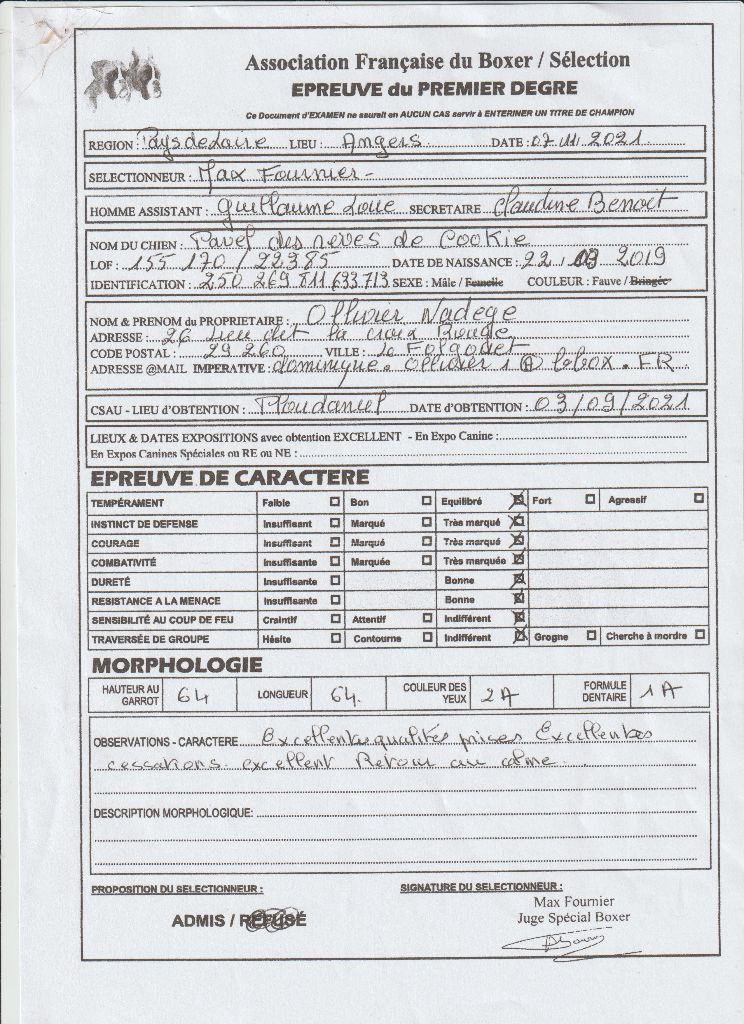 Association Française du Boxer / Sélection
EPREUVE du PREMIER DEGRE
Ce Document d'EXAMEN ne saurait en AUCUN CAS servir à ENTERINER UN TITRE DE CHAMPION
REGION : Pays de Loire LIEU : Angers DATE : 07.11.2021
SELECTIONNEUR : Max Fournier -
HOMME ASSISTANT : Guillaume Loue SECRETAIRE Claudine Benoet
NOM DU CHIEN : Pavel des reves de Cookie
LOF : 155 170 / 22385 DATE DE NAISSANCE : 22 . 03 2019
IDENTIFICATION : 250 269 811 633 713 SEXE : Mâle / Femelle COULEUR : Fauve / Bringée
NOM & PRENOM du PROPRIETAIRE : Ollivier Nadege
ADRESSE : 26 Lieu dit la croix Rouge
CODE POSTAL : 29 260 VILLE : Le Folgoet
ADRESSE @MAIL IMPERATIVE : dominique . ollivier 1 @ bbox . FR
CSAU - LIEU d'OBTENTION : Ploudaniel DATE d'OBTENTION : 03/09/2021
LIEUX & DATES EXPOSITIONS avec obtention EXCELLENT - En Expo Canine :
En Expos Canines Spéciales ou RE ou NE :
EPREUVE DE CARACTERE
TEMPÉRAMENT Faible Bon Equilibré Fort Agressif
INSTINCT DE DEFENSE Insuffisant Marqué Très marqué
COURAGE Insuffisant Marqué Très marqué
COMBATIVITÉ Insuffisante Marquée Très marquée
DURETÉ Insuffisante Bonne
RESISTANCE A LA MENACE Insuffisante Bonne
SENSIBILITÉ AU COUP DE FEU Craintif Attentif Indifférent
TRAVERSÉE DE GROUPE Hésite Contourne Indifférent Grogne Cherche à mordre
MORPHOLOGIE
HAUTEUR AU GARROT 64 LONGUEUR 64. COULEUR DES YEUX 2A FORMULE DENTAIRE 1A
OBSERVATIONS - CARACTERE Excellentes qualités prises Excellentes
cessations excellent Retour au calme
DESCRIPTION MORPHOLOGIQUE:
PROPOSITION DU SELECTIONNEUR :
SIGNATURE DU SELECTIONNEUR :
ADMIS / REFUSÉ
Max Fournier
Juge Spécial Boxer